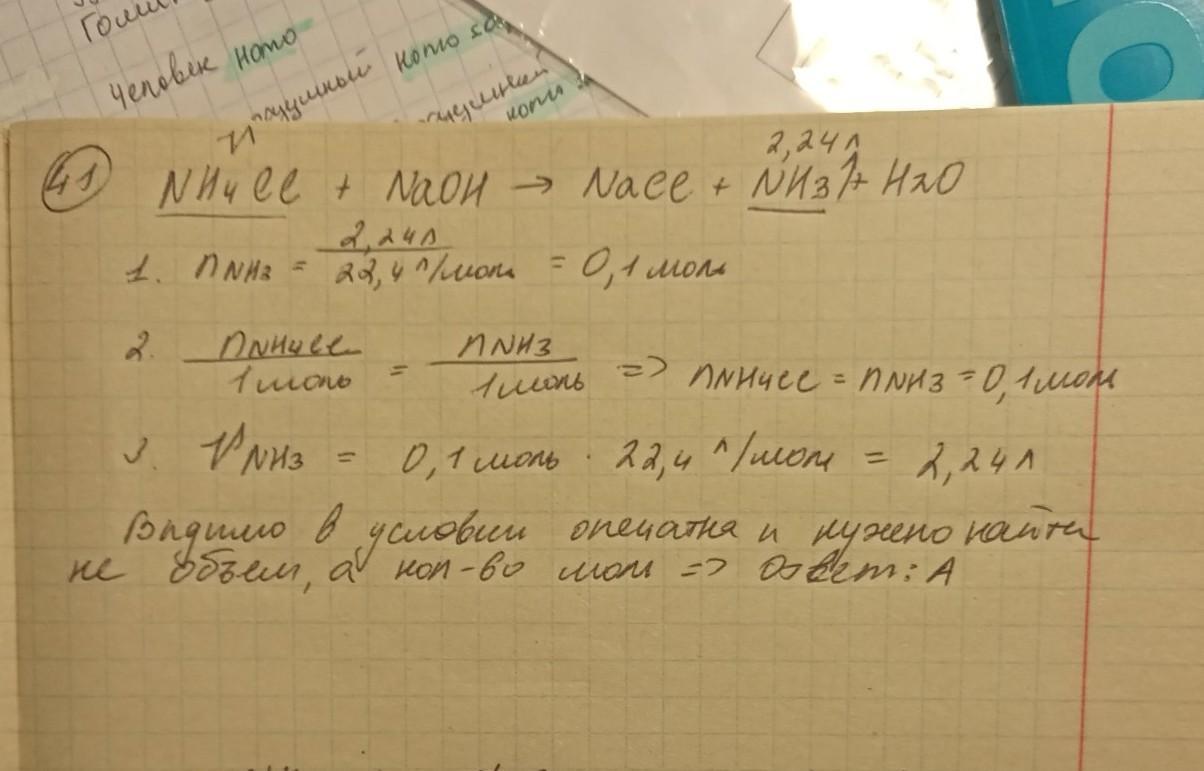 человек Homo
Homo sa
41
V
2,24л
NH4Cl + NaOH → NaCl + NH3↑ + H2O
1. nNH3 = 2,24л / 22,4 л/моль = 0,1 моль
2. nNH4Cl / 1моль = nNH3 / 1моль => nNH4Cl = nNH3 = 0,1моль
3. VNH3 = 0,1 моль · 22,4 л/моль = 2,24л
Видимо в условии опечатка и нужно найти
не объем, а кол-во моль => Ответ: А